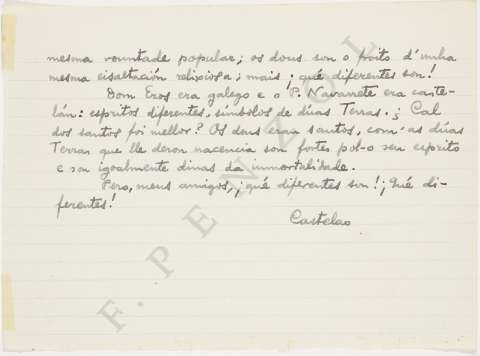 mesma vountade popular; os dous son o froito d'unha
mesma eisaltación relixiosa; mais ¡qué diferentes son!
Dom Eros era galego e o P. Navarrete era caste-
lán: espritos diferentes, símbolos de dúas Terras. ¿Cal
dos santos foi mellor? Os dous eran santos, com-as dúas
Terras que lle deron nacencia son fortes pol-o seu esprito
e son igoalmente dinas da inmortalidade.
Pero, meus amigos, ¡qué diferentes son! ¡Qué di-
ferentes!
Castelao
F. PENZOL